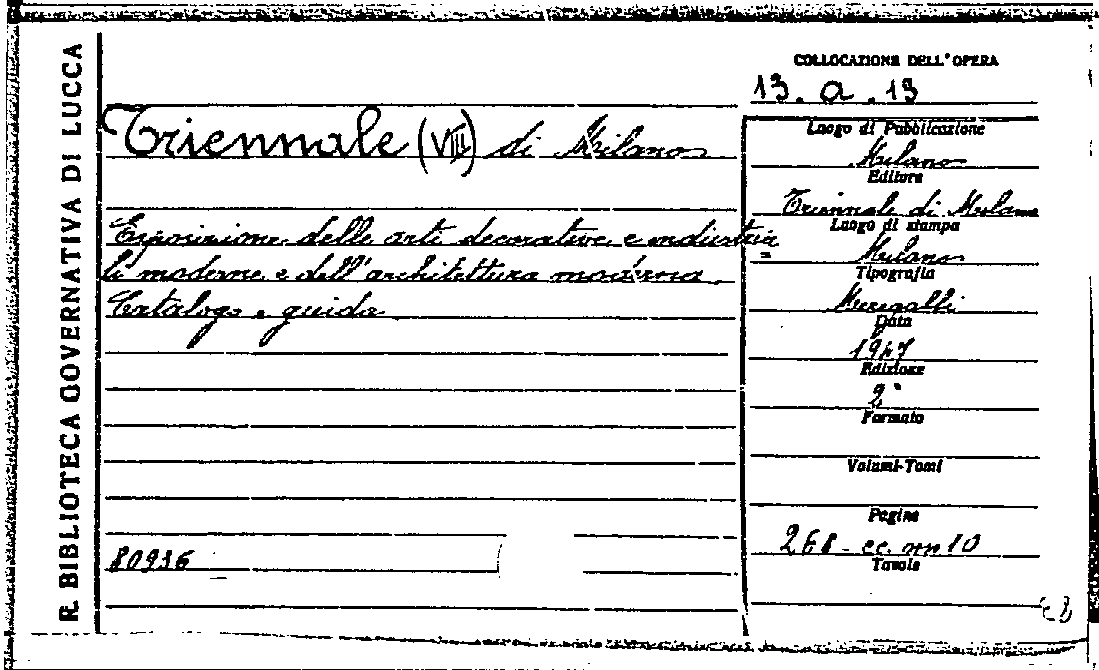 R. BIBLIOTECA GOVERNATIVA DI LUCCA
Triennale (VIII) di Milano
Esposizione delle arti decorative e industria=
li moderne e dell'architettura moderna.
Catalogo e guida
80936
COLLOCAZIONE DELL'OPERA
13. a. 13
Luogo di Pubblicazione
Milano
Editore
Triennale di Milano
Luogo di stampa
Milano
Tipografia
Data
1947
Edizione
2ª
Formato
Volumi-Tomi
Pagine
268 - cc. nn 10
Tavole